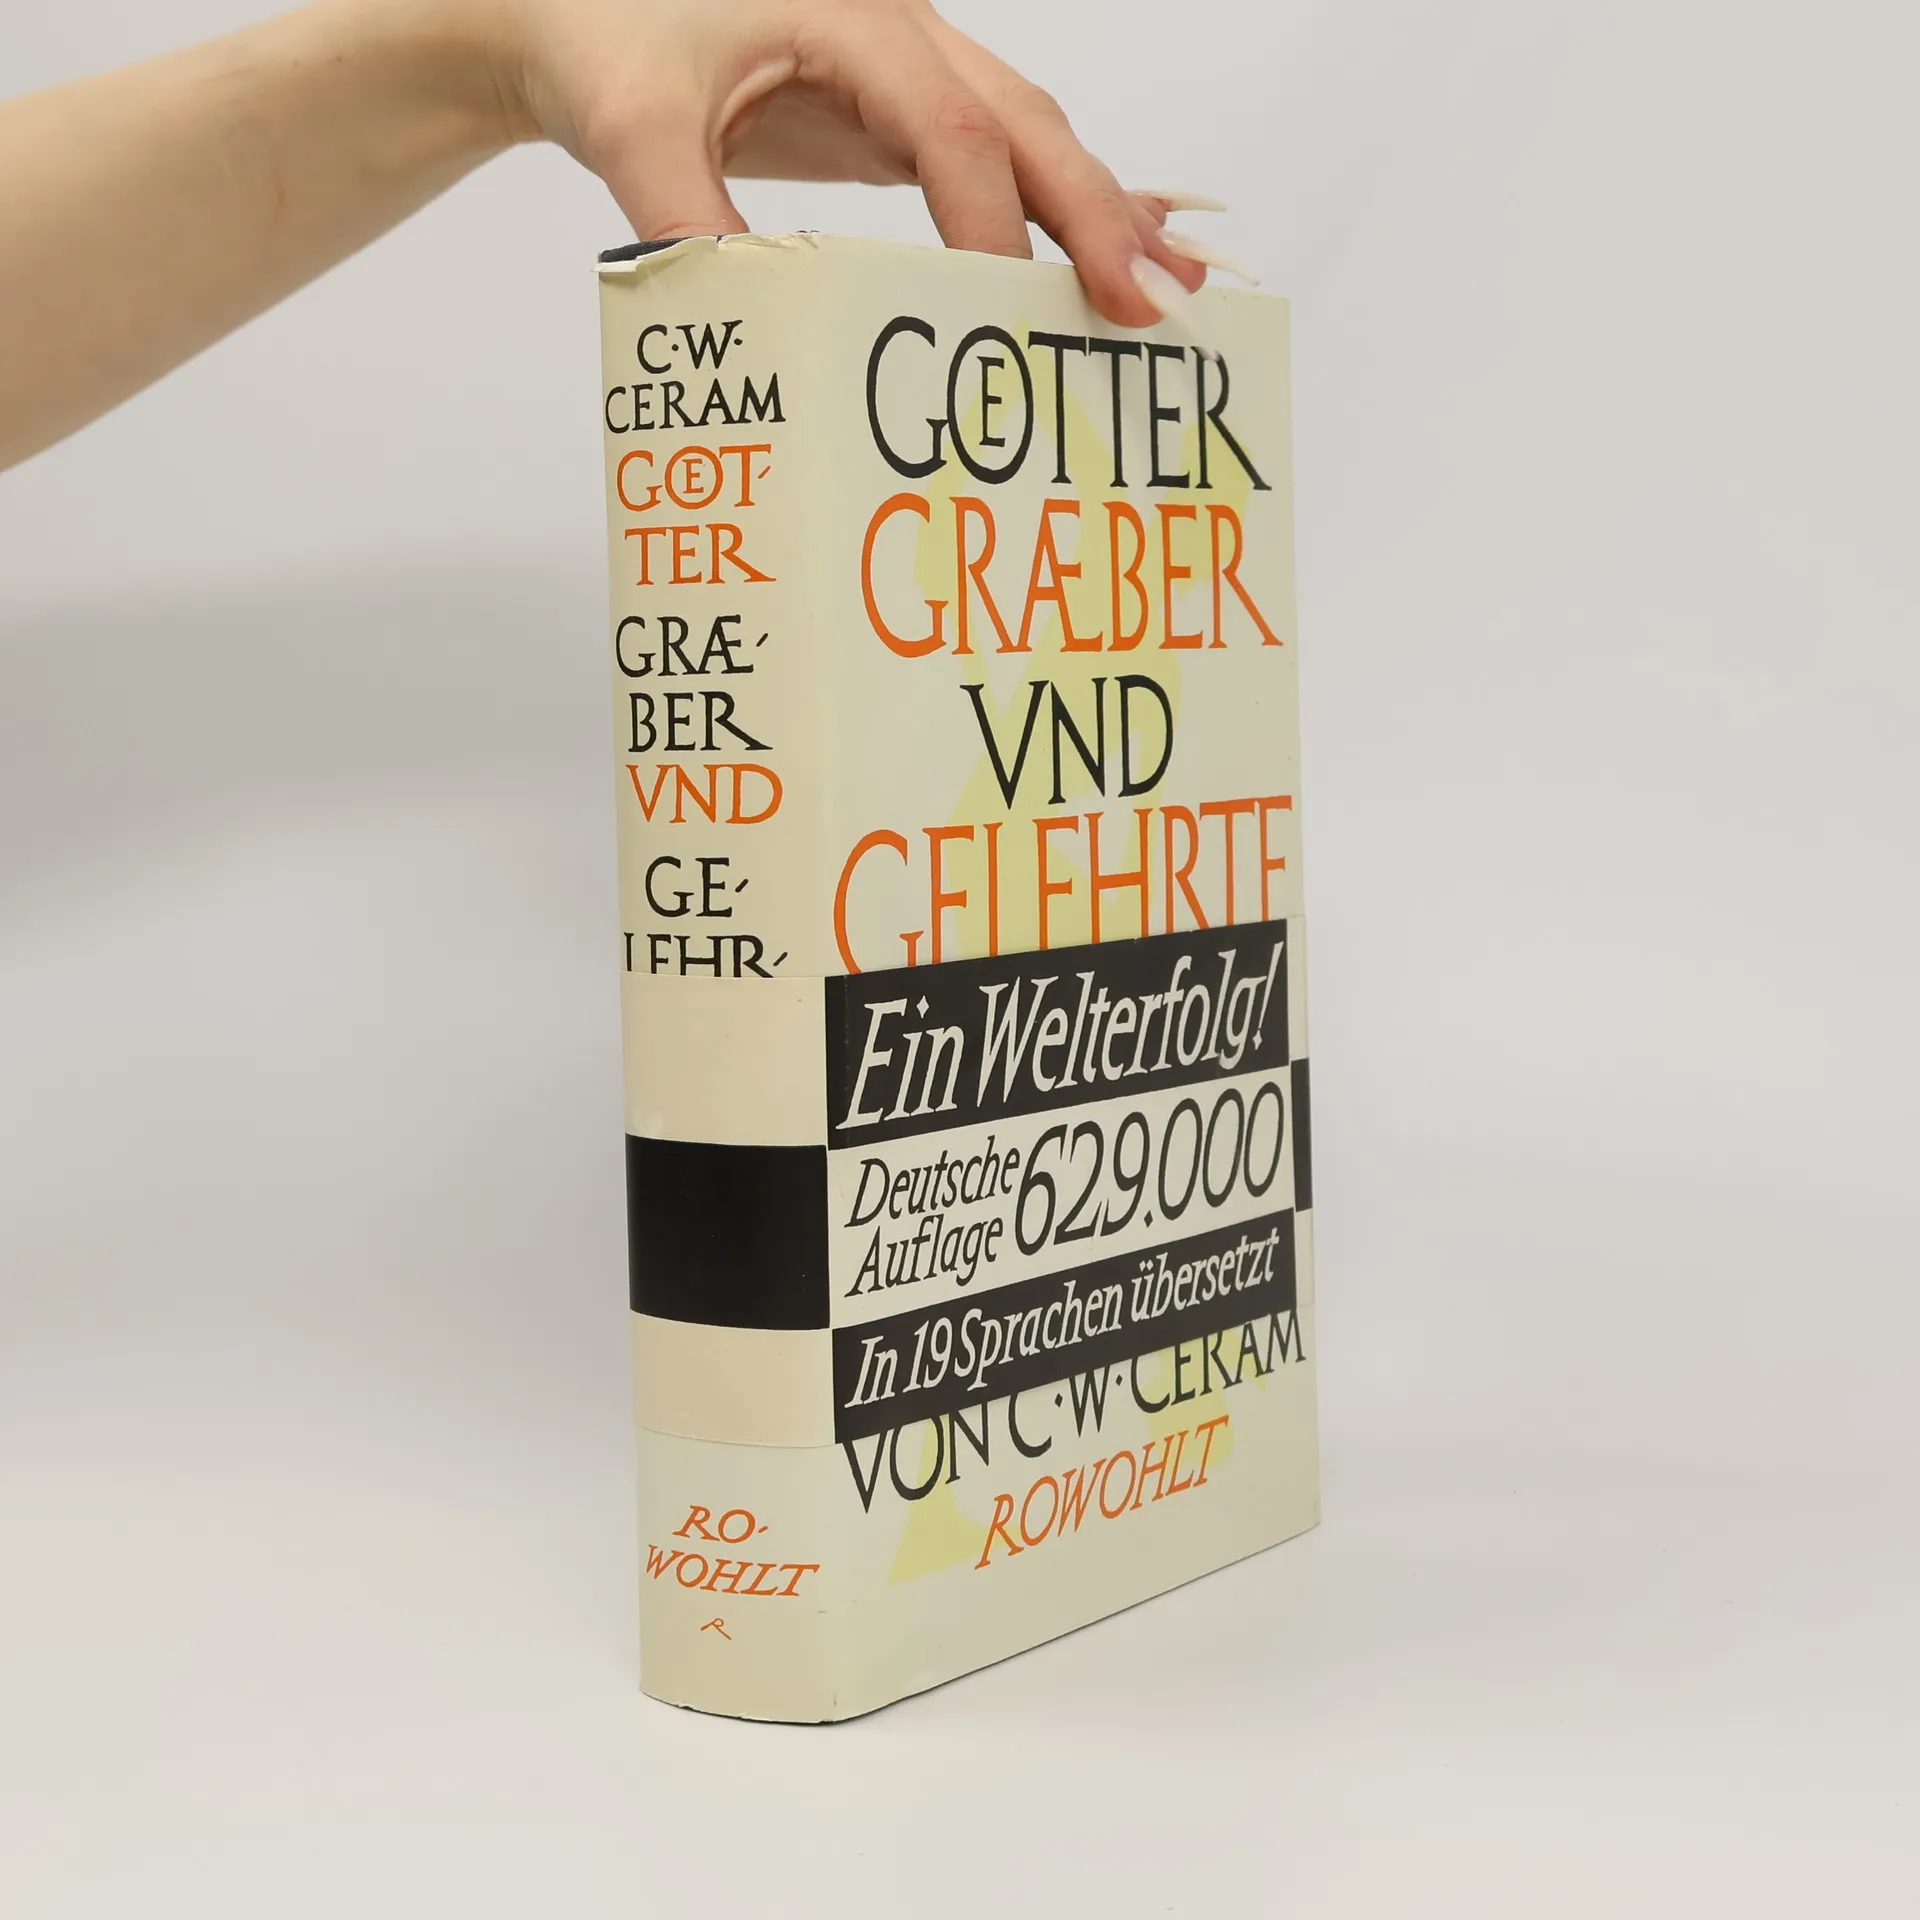 C·W·
CERAM
GŒT-
TER
GRÆ-
BER
VND
GE-
LEHR-
RO-
WOHLT
R
GŒTTER
GRÆBER
VND
GELEHRTE
Ein Welterfolg!
Deutsche
Auflage 629.000
In 19 Sprachen übersetzt
VON C·W·CERAM
ROWOHLT